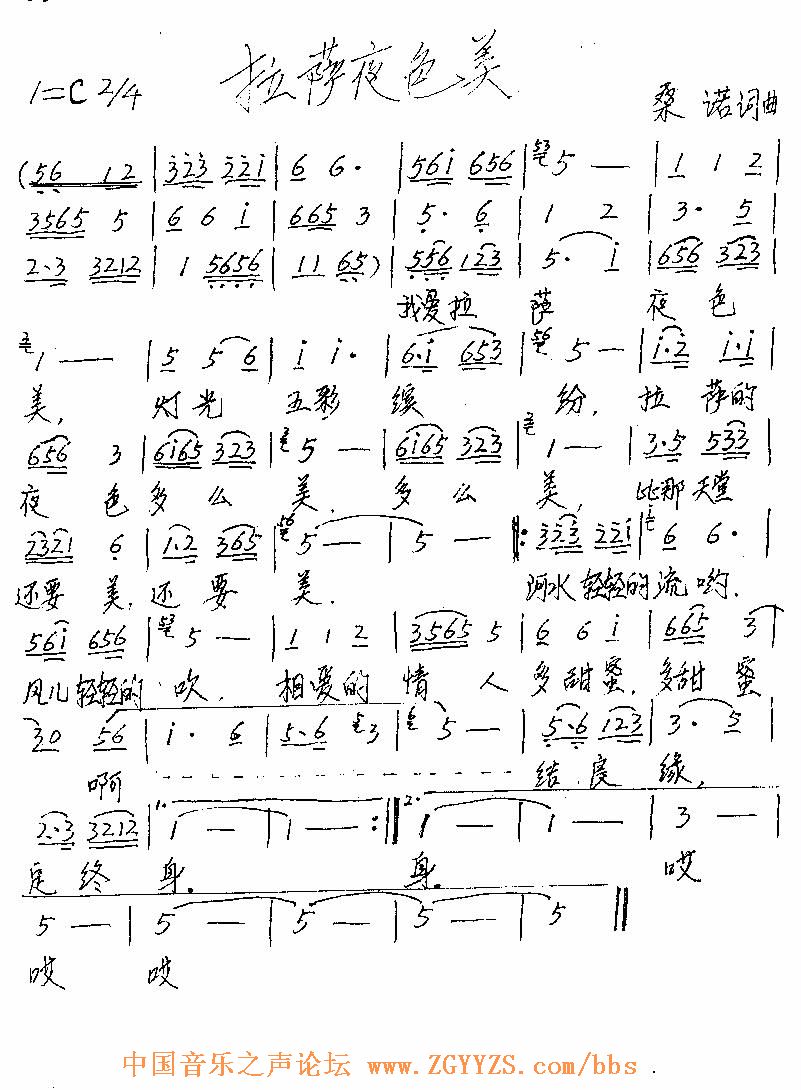 拉萨夜色美
1=C 2/4
桑诺词曲
(56 12 | 323 221 | 6 6· | 561 656 | 5 — | 1 1 2 |
3565 5 | 6 6 1 | 665 3 | 5· 6 | 1 2 | 3· 5 |
2·3 3212 | 1 5656 | 11 65) | 556 123 | 5· 1 | 656 323 |
我爱拉 萨 夜 色
1 — | 5 5 6 | 1 1· | 6·1 653 | 56 5 — | 1·2 1·1 |
美, 灯光 五彩 缤 纷, 拉 萨的
656 3 | 6165 323 | 5 — | 6165 323 | 1 — | 3·5 533 |
夜 色 多 么 美, 多 么 美, 比那天堂
2321 6 | 1·2 365 | 56 5 — | 5 — |: 323 221 | 6 6· |
还要 美, 还 要 美. 河水轻轻的流哟.
561 656 | 5 — | 1 1 2 | 3565 5 | 6 6 1 | 665 3 |
风儿轻轻的 吹, 相爱的 情 人 多甜蜜, 多甜 蜜
30 56 | 1· 6 | 5·6 3 | 5 — | 5·6 123 | 3· 5 |
啊 结 良 缘,
2·3 3212 | 1. 1 — | 1 — :| 2. 1 — | 1 — | 3 — |
定 终 身. 身. 哎
5 — | 5 — | 5 — | 5 — | 5 ||
哎 哎
中国音乐之声论坛 www.ZGYYZS.com/bbs